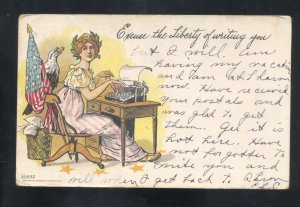 Excuse the Liberty of writing you
but I will am
having my vacati
and I am at Sharon
now. Have received
your postals and
was glad to get
them. Gee it is
hot here. Have
not forgotten to
write you and
will when I get back to Akron